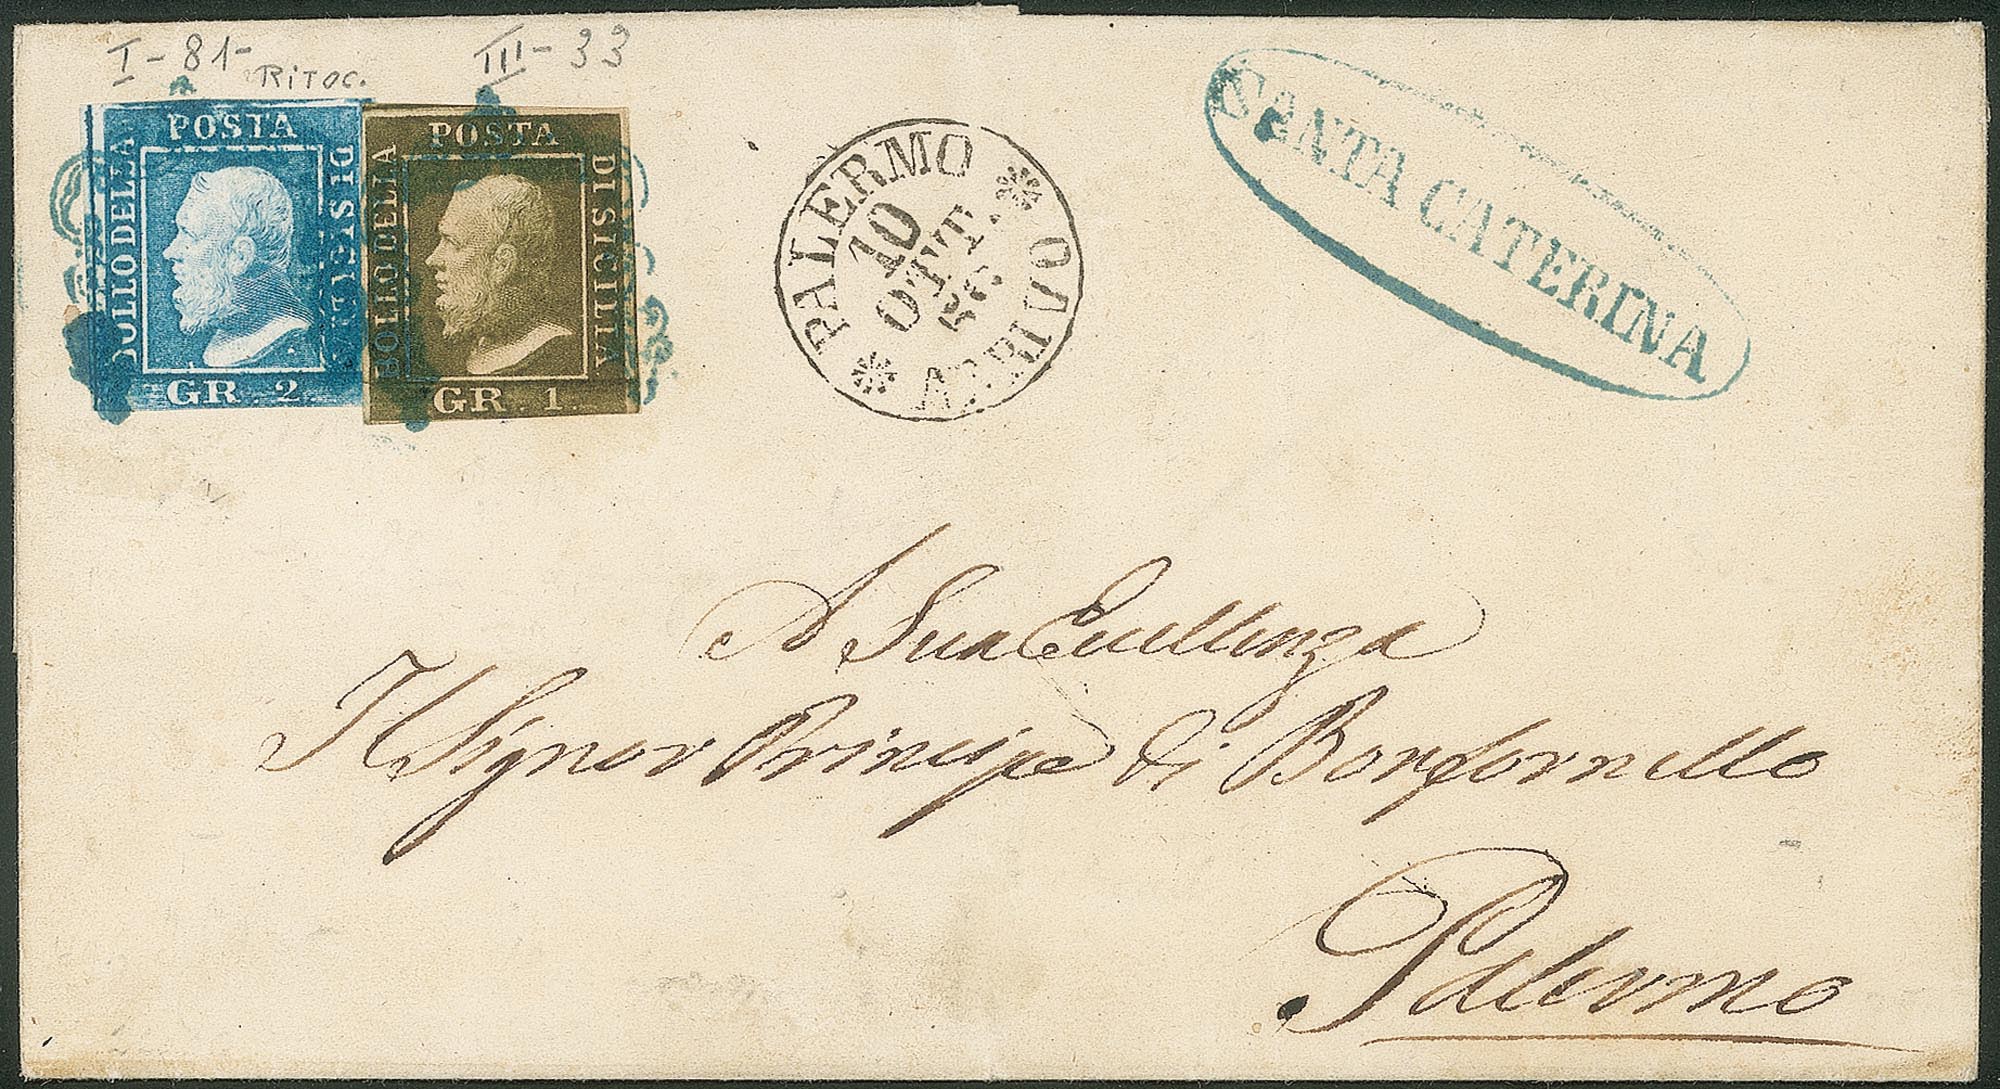 I - 81 -
RITOC.
III - 33
POSTA
BOLLO DELLA
DI SICILIA
GR. 2.
POSTA
BOLLO DELLA
DI SICILIA
GR. 1.
PALERMO
10
OTT.
ARRIVO
SANTA CATERINA
A Sua Eccellenza
Il Signor Principe di Bonfornello
Palermo